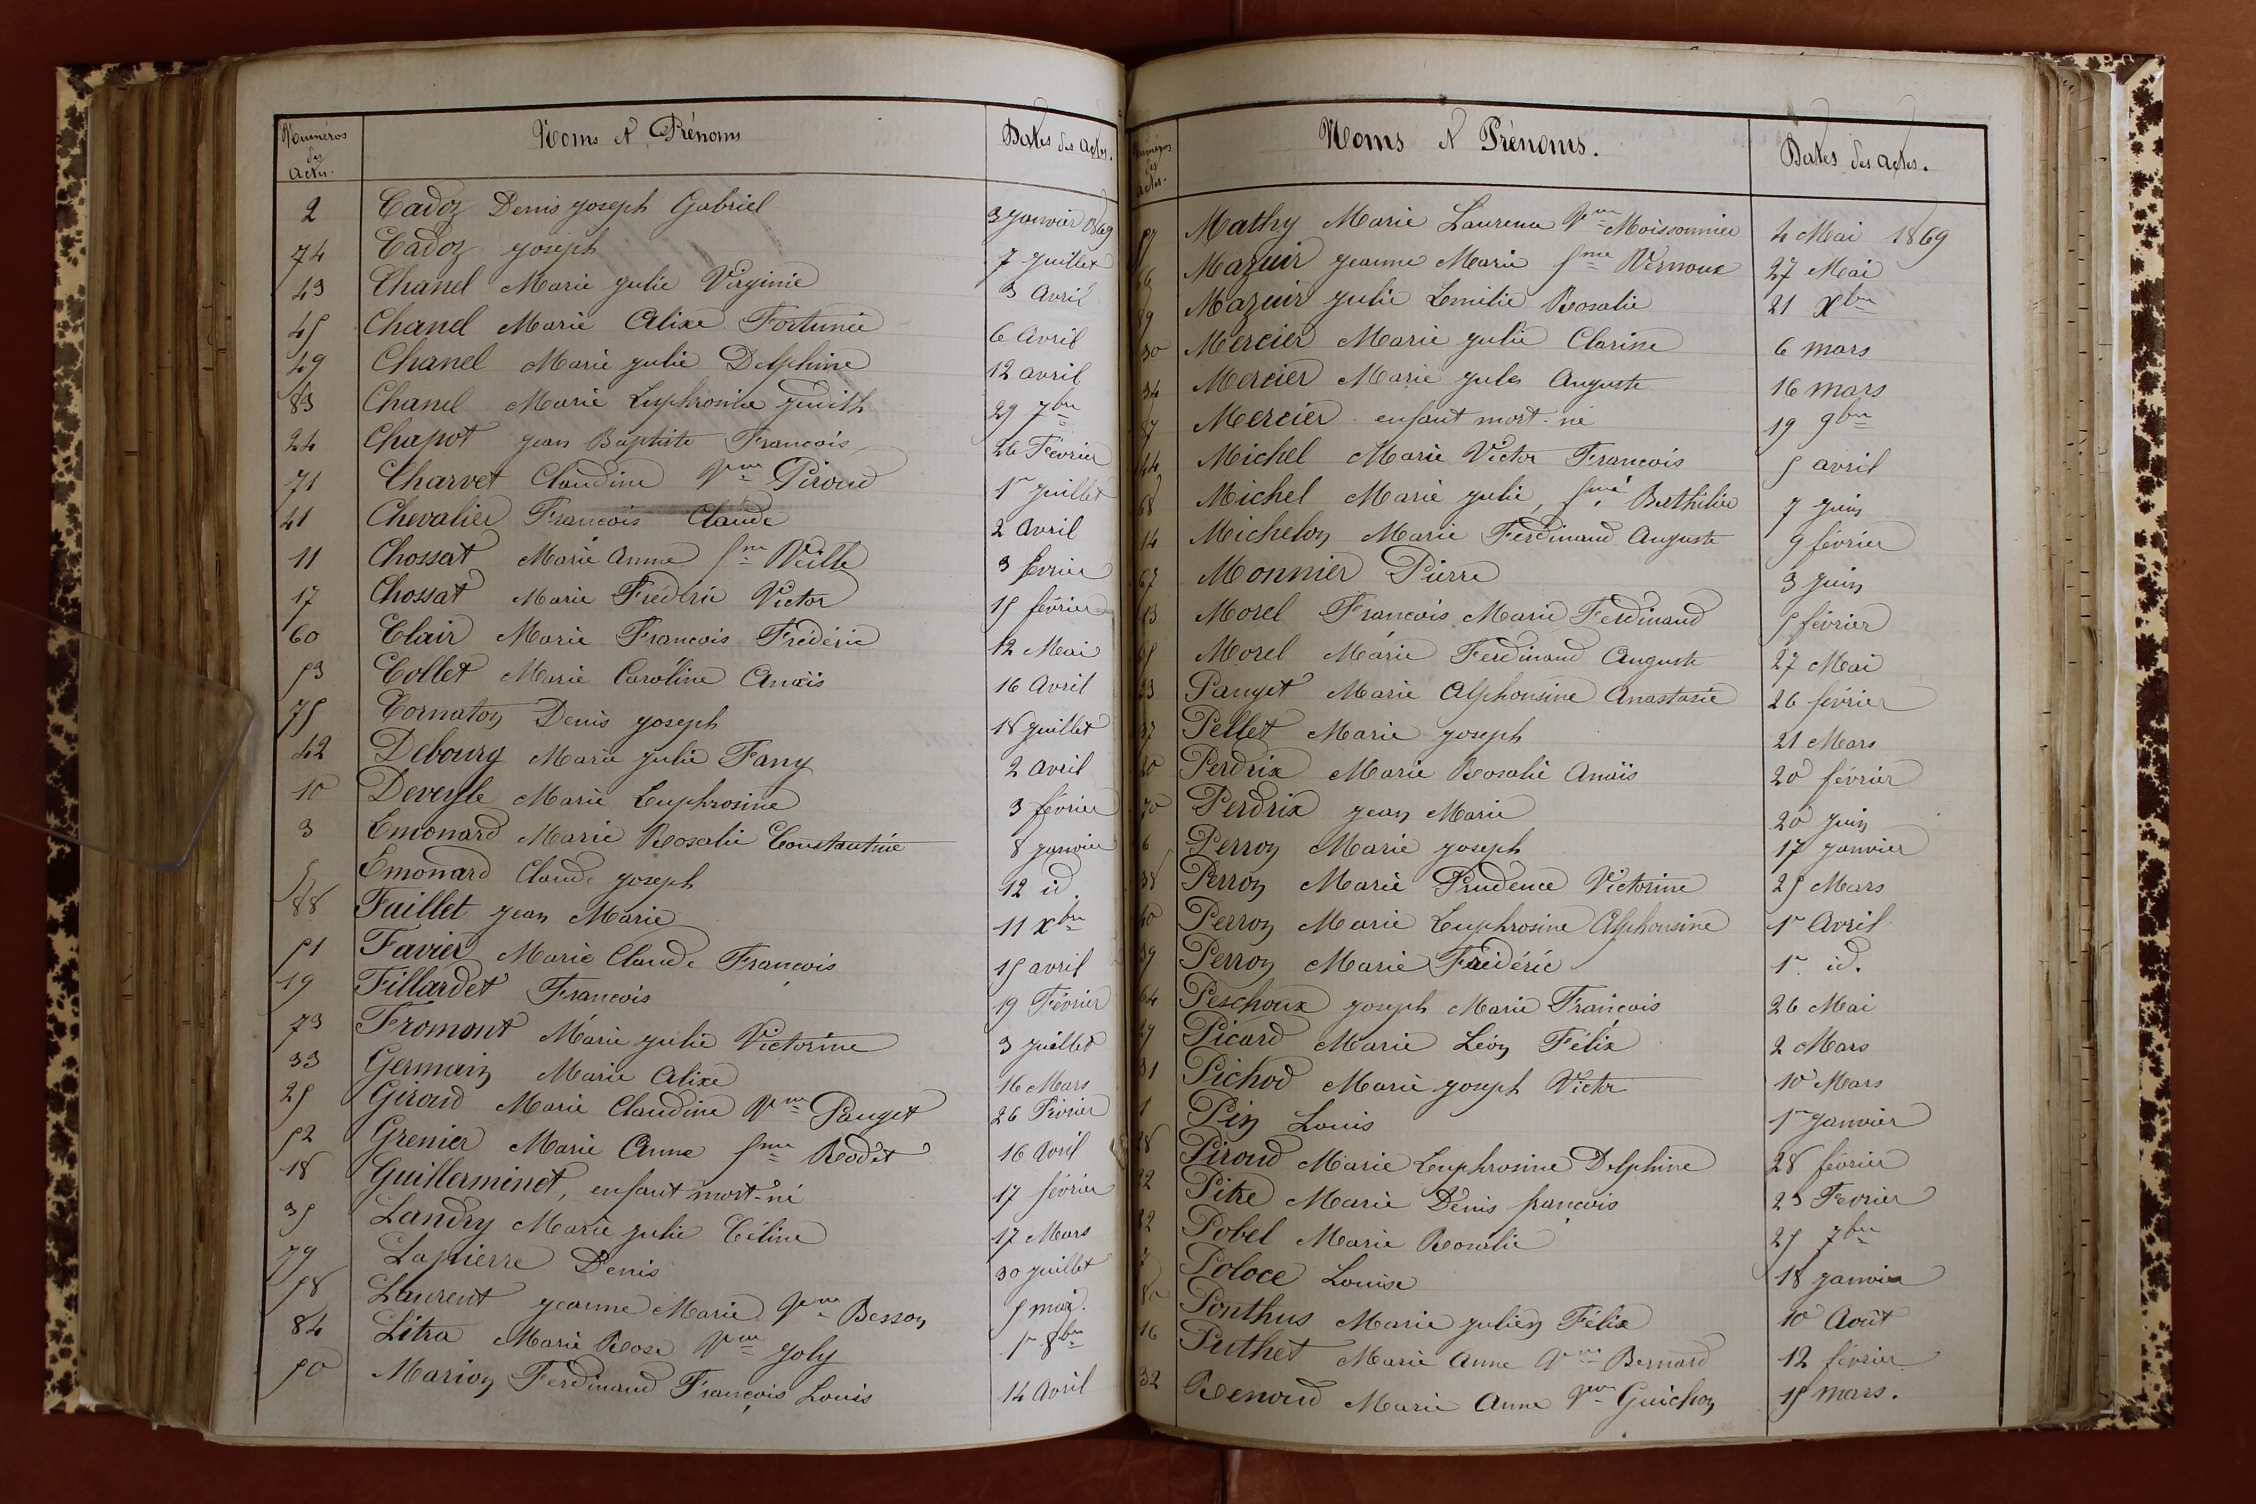 Numéros des Actes. Noms et Prénoms Dates des actes.
2 Cadoz Denis joseph Gabriel 3 janvier 1869
74 Cadoz joseph 7 juillet
43 Chanel Marie julie Virginie 3 avril
45 Chanel Marie Alixe Fortunée 6 avril
49 Chanel Marie julie Delphine 12 avril
83 Chanel Marie Euphrosine judith 29 7bre
24 Chapot jean Baptiste François 26 Février
71 Charvet Claudine Vve Piroud 1r juillet
41 Chevalier François Claude 2 avril
11 Chossat Marie Anne fme Veille 3 février
17 Chossat Marie Frédéric Victor 15 février
60 Clair Marie François Frédéric 12 Mai
53 Collet Marie Caroline Anaïs 16 avril
75 Cornaton Denis joseph 18 juillet
42 Debourg Marie julie Fany 2 avril
10 Deveyle Marie Euphrosine 3 février
3 Emonard Marie Rosalie Constantine 8 janvier
5 Emonard Claude joseph 12 id.
88 Faillet jean Marie 11 Xbre
51 Favier Marie Claude François 15 avril
19 Fillardet François 19 Février
73 Fromont Marie julie Victorine 3 juillet
33 Germain Marie Alixe 16 Mars
25 Giroud Marie Claudine Vve Pauget 26 Février
52 Grenier Marie Anne fme Rodet 16 avril
18 Guillerminet, enfant mort-né 17 février
35 Landry Marie julie Céline 17 Mars
79 Lapierre Denis 30 juillet
58 Laurent jeanne Marie Vve Besson 5 mai.
84 Litra Marie Rose Vve joly 1r 8bre
50 Marion Ferdinand François Louis 14 avril
Numéros des actes. Noms et Prénoms. Dates des actes.
57 Mathy Marie Laurence Vve Moissonnier 4 Mai 1869
66 Mazuir jeanne Marie fme Vernoux 27 Mai
89 Mazuir julie Emilie Rosalie 21 Xbre
30 Mercier Marie julie Clarisse 6 mars
34 Mercier Marie jules Auguste 16 mars
87 Mercier enfant mort-né 19 9bre
44 Michel Marie Victor François 5 avril
68 Michel Marie julie, fme Berthilier 7 juin
14 Michelon Marie Ferdinand Auguste 9 février
67 Monnier Pierre 3 juin
13 Morel François Marie Ferdinand 5 février
65 Morel Marie Ferdinand Auguste 27 Mai
23 Pauget Marie Alphonsine Anastasie 26 février
37 Pellet Marie joseph 21 Mars
20 Perdrix Marie Rosalie Anaïs 20 février
70 Perdrix jean Marie 20 juin
6 Perron Marie joseph 17 janvier
38 Perron Marie Prudence Victorine 25 Mars
40 Perron Marie Euphrosine Alphonsine 1r Avril
39 Perron Marie Frédéric 1r id.
64 Peschoux joseph Marie François 26 Mai
29 Picard Marie Léon Félix 2 Mars
31 Pichod Marie joseph Victor 10 Mars
1 Pin Louis 1r janvier
28 Piroud Marie Euphrosine Delphine 28 février
22 Pitre Marie Denis françois 23 Fevrier
82 Pobel Marie Rosalie 25 7bre
7 Poloce Louise 18 janvier
80 Ponthus Marie julien Félix 10 Août
16 Puthet Marie Anne Vve Bernard 12 février
32 Renoud Marie Anne Vve Guichon 15 mars.